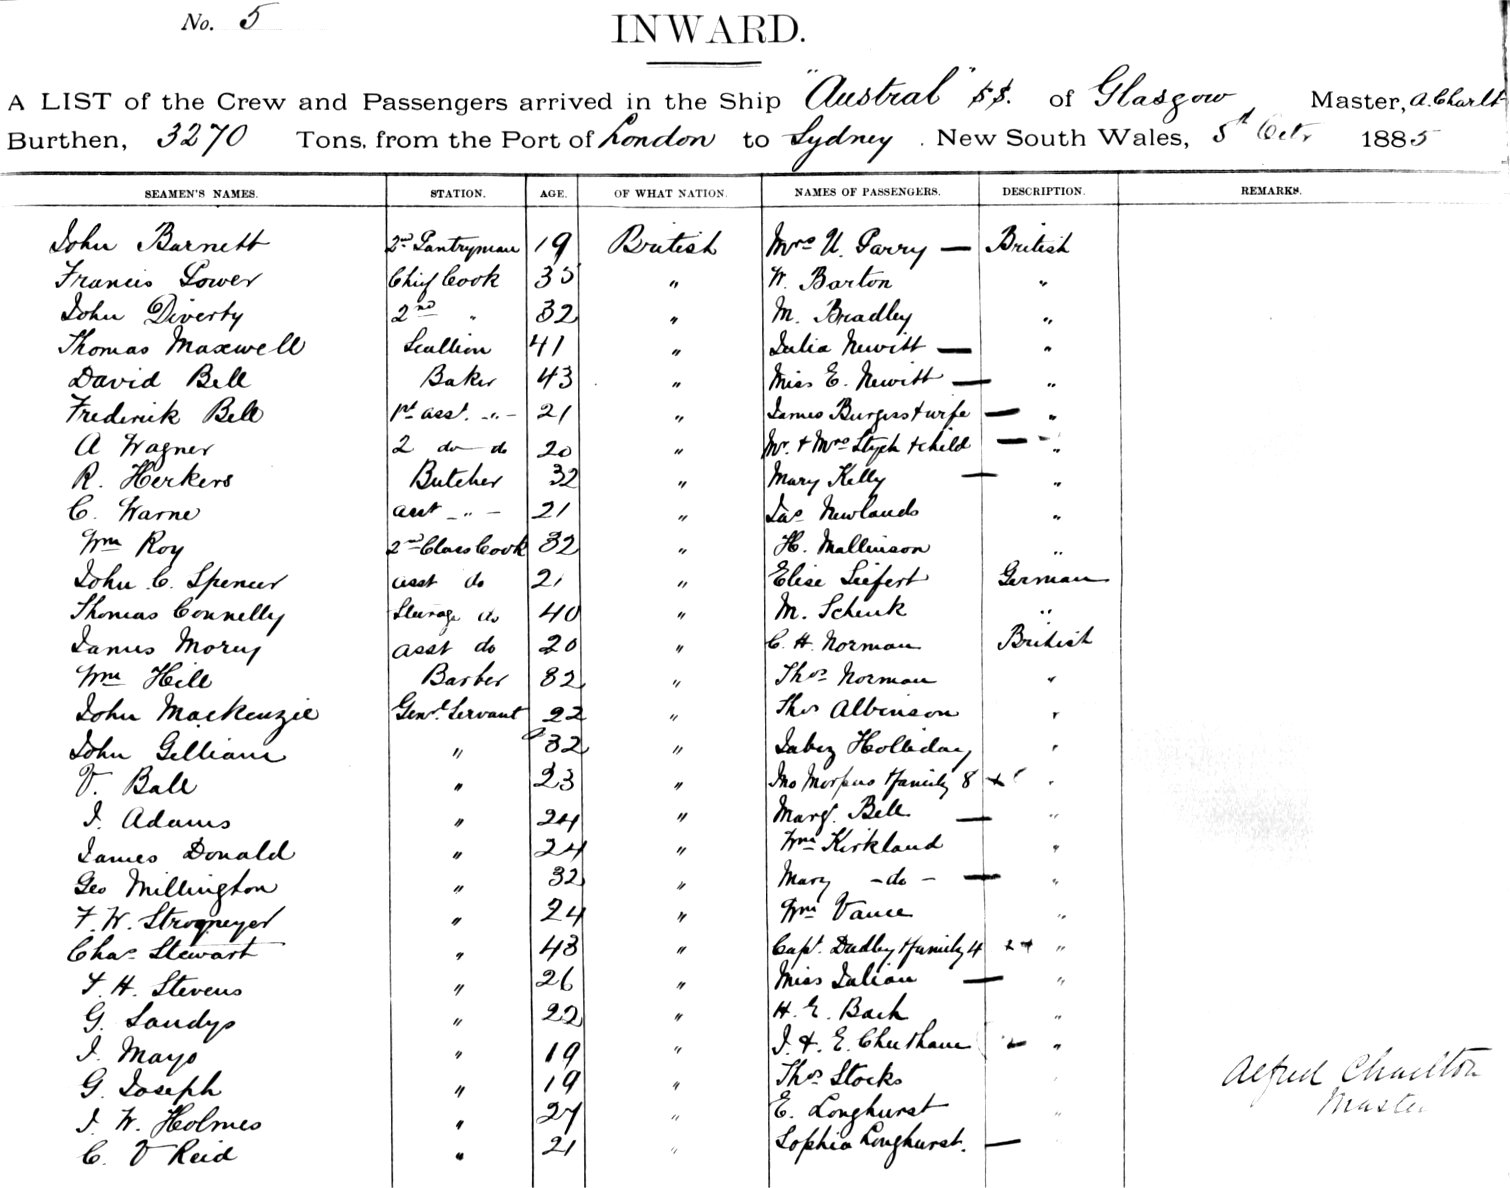 No. 5
INWARD.
A LIST of the Crew and Passengers arrived in the Ship "Austral" SS. of Glasgow, Master, A. Charlt
Burthen, 3270 Tons, from the Port of London to Sydney. New South Wales, 5th Octr 1885
SEAMEN'S NAMES. STATION. AGE. OF WHAT NATION. NAMES OF PASSENGERS. DESCRIPTION. REMARKS.
John Barnett 2nd Pantryman 19 British Mrs U. Parry — British
Francis Lower Chief Cook 35 " W. Barton "
John Diverty 2nd " 32 " M. Bradley "
Thomas Maxwell Scullion 41 " Julia Newitt — "
David Bell Baker 43 " Miss E. Newitt — "
Frederick Bell 1st asst. -"- 21 " James Burgess & wife — "
A Wagner 2 do do 20 " Mr. & Mrs & child — "
R. Herkers Butcher 32 " Mary Kelly — "
C. Warne asst -"- 21 " Jas Newlands "
Wm Roy 2nd Class Cook 32 " H. Mallinson "
John C. Spencer asst do 21 " Elise Siefert German
Thomas Connelly Steerage do 40 " M. Schenk "
James Mory asst do 20 " C. H. Norman British
Wm Hill Barber 32 " Thos Norman "
John Mackenzie Genl. Servant 22 " Thos Albinson "
John Gilliam " 32 " Jabez Holliday "
V. Ball " 23 " Jno Morpus & family 8 "
J. Adams " 24 " Margt. Bell — "
James Donald " 24 " Wm Kirkland "
Geo Millington " 32 " Mary -do- — "
F. W. Strogneyer " 24 " Wm Vance "
Chas Stewart " 43 " Capt. Dudley & family 4 "
F. H. Stevens " 26 " Miss Julian — "
G. Sandys " 22 " H. E. Bach "
J. Mayo " 19 " J. & E. Cheetham — "
G. Joseph " 19 " Thos Stocks
J. W. Holmes " 27 " E. Longhurst "
C. V Reid " 21 " Sophia Longhurst. —
Alfred Charlton
Master